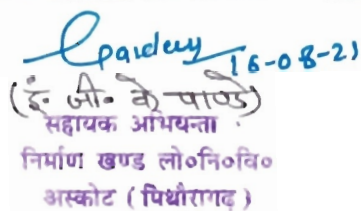 Gpandey 16-08-21
(इं. जी. के पाण्डे)
सहायक अभियन्ता
निर्माण खण्ड लो०नि०वि०
अस्कोट (पिथौरागढ़)